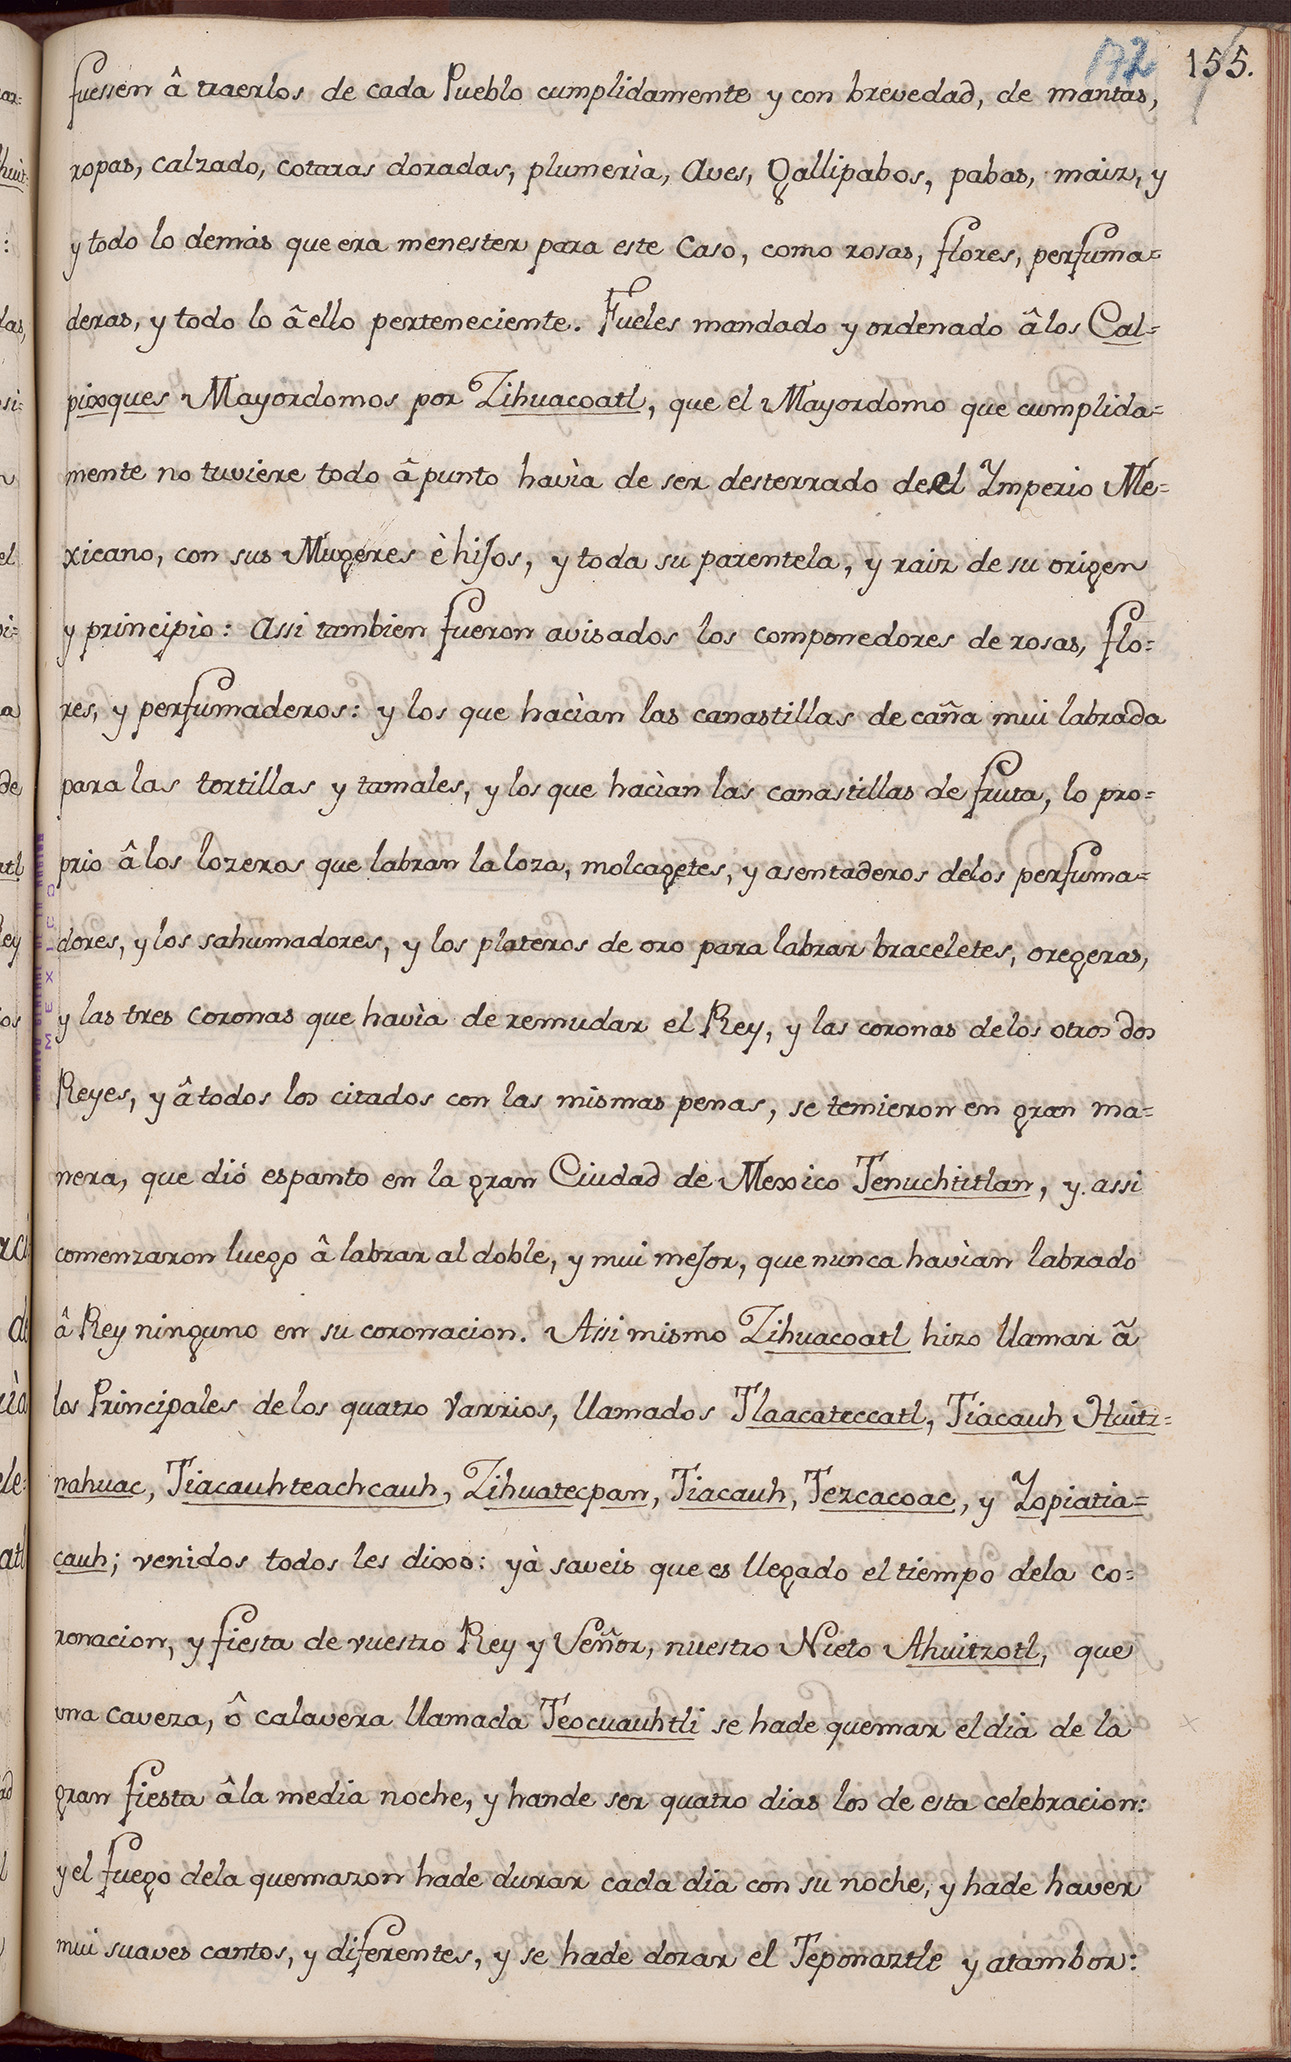 172 155.
fuessen â traerlos de cada Pueblo cumplidamente y con brevedad, de mantas,
ropas, calzado, cotaras doradas, plumerìa, Aves, Gallipabos, pabas, maiz, y
y todo lo demàs que era menester para este Caso, como rosas, flores, perfuma=
deras, y todo lo â ello perteneciente. Fueles mandado y ordenado â los Cal=
pixques Mayordomos por Zihuacoatl, que el Mayordomo que cumplida=
mente no tuviere todo â punto havìa de ser desterrado de el Ymperio Me=
xicano, con sus Mugeres è hijos, y toda su parentela, y raiz de su origen
y principio: Assi tambien fueron avisados los componedores de rosas, flo=
res, y perfumaderos: y los que hacìan las canastillas de caña mui labrada
para las tortillas y tamales, y los que hacìan las canastillas de fruta, lo pro=
prio â los lozeros que labran la loza, molcagetes, y asentaderos delos perfuma=
dores, y los sahumadores, y los plateros de oro para labrar braceletes, oregeras,
y las tres coronas que havìa de remudar el Rey, y las coronas delos otros dos
Reyes, y â todos los citados con las mismas penas, se temieron en gran ma=
nera, que dió espanto en la gran Ciudad de Mexico Tenuchtitlan, y assi
comenzaron luego â labrar al doble, y mui mejor, que nunca havìan labrado
â Rey ninguno en su coronacion. Assi mismo Zihuacoatl hizo llamar ã
los Principales de los quatro Varrios, llamados Tlaacateccatl, Tiacauh Huitz=
nahuac, Tiacauhteachcauh, Zihuatecpan, Tiacauh, Tezcacoac, y Yopiatia=
cauh; venidos todos les dixo: yà saveis que es llegado el tiempo dela co=
ronacion, y fiesta de vuestro Rey y Señor, nuestro Nieto Ahuitzotl, que
una caveza, ô calavera llamada Teocuauhtli se hade quemar el dia de la
gran fiesta â la media noche, y hande ser quatro dias los de esta celebracion:
y el fuego dela quemazon hade durar cada dia con su noche, y hade haver
mui suaves cantos, y diferentes, y se hade dorar el Teponaztle y atambor: